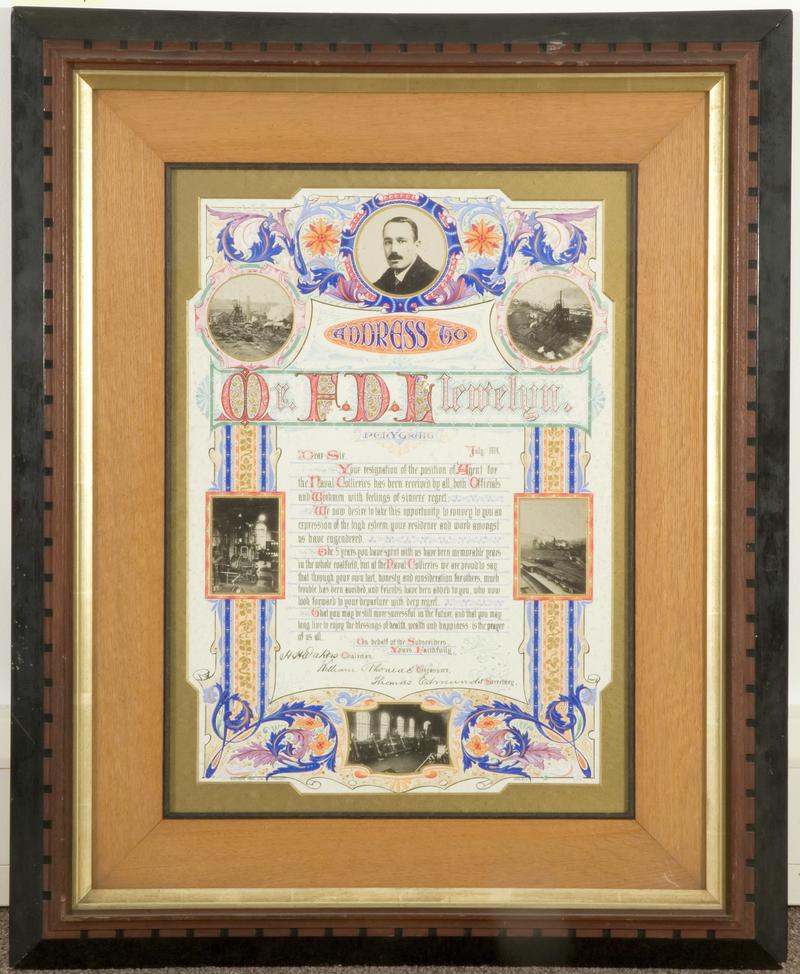 ADDRESS TO
Mr. F.D.Llewelyn.
PENYGRAIG
Dear Sir, July, 1914.
Your resignation of the position of Agent for
the Naval Collieries has been received by all, both Officials
and Workmen with feelings of sincere regret.
We now desire to take this opportunity to convey to you an
expression of the high esteem, your residence and work amongst
us have engendered.
The 5 years you have spent with us have been memorable years
in the whole coalfield, but at the Naval Collieries we are proud to say
that through your own tact, honesty and consideration for others, much
trouble has been avoided, and friends have been added to you, who now
look forward to your departure with deep regret.
That you may be still more successful in the future, and that you may
long live to enjoy the blessings of health, wealth and happiness is the prayer
of us all.
On behalf of the Subscribers
Yours Faithfully
Chairman.
William Thomas Treasurer.
Thomas Edmunds Secretary.